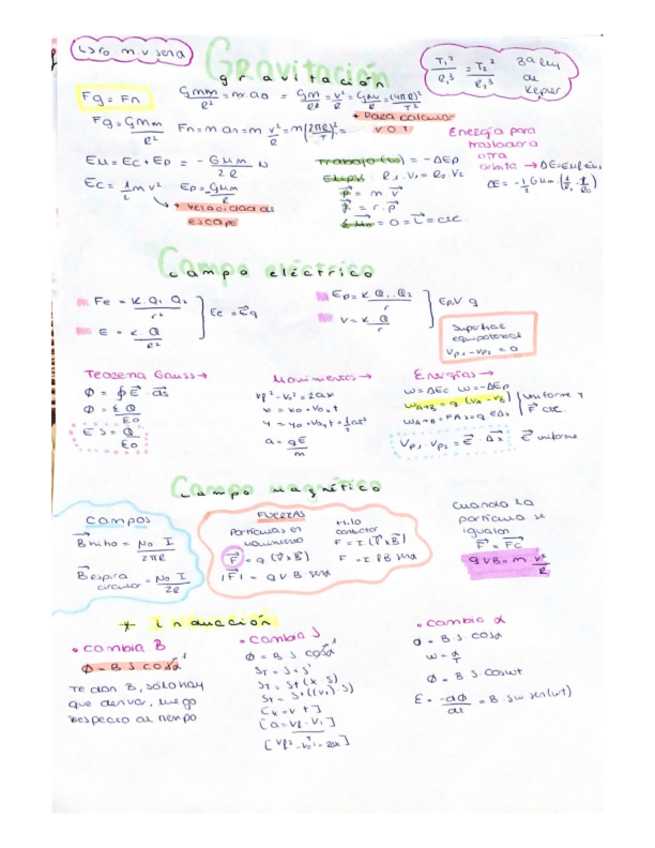 L = r o m . v senα
Gravitación
gravitación
T₁²/R₁³ = T₂²/R₂³ 3ª ley de Kepler
Fg = Fn
GMm/R² = m·ao = GM/R² = V²/R = GM/R = (4π²R)²/T²
* Para calcular v o T
Fg = GMm/R² Fn = m an = m v²/R = m(2πR)²/T
Energía para trasladar a otra orbita → ΔE = EMf - EMi
ΔE = -1/2 GMm (1/R₁ - 1/R₀)
EM = Ec + Ep = - GMm/2R
Ec = 1/2 m v² Ep = GMm/R
* velocidad de escape
Trabajo (w) = -ΔEp
Elipse: R₁.V₁ = R₂.V₂
p = m.v
r.p
= 0 = L = cte
Campo eléctrico
campo eléctrico
Fe = K.Q₁.Q₂/r²
E = K.Q/R²
Fe = Eq
Ep = K.Q₁.Q₂/r
V = K.Q/r
Ep = V q
Superficie equipotencial
Vp₁ - Vp₂ = 0
Teorema Gauss →
Φ = ∮E . ds
Φ = Σ Q/Eo
E S = Q/Eo
Movimientos →
Vf² - Vo² = 2ax
x = xo + Vo.t
y = yo + Voy t + 1/2 at²
a = qE/m
Energías →
W = ΔEc W = -ΔEp
WA→B = q (VA - VB)
WA→B = F Δx = q E Δx
Uniforme y F cte.
Vp₁ Vp₂ = E . Δx E uniforme
Campo magnético
campo magnético
Campos
B hilo = No I/2πR
B espira circular = No I/2R
FUERZAS
Partículas en movimiento
F = q.(V x B)
|F| = q V B . senα
Hilo conductor
F = I.(l x B)
F = I.l B senα
Cuando la partícula se igualan
F = Fc
qVB = m v²/R
* inducción
• cambia B
Φ = B S cosα
Te dan B, sólo hay
que derivar, luego
respecto al tiempo
• cambia S
Φ = B S cosα
ST = S + S'
ST = S + (x . S)
ST = S + ((v t) . S)
[x = v t]
[a = Vf - Vi]
[Vf² - Vo² = 2ax]
• cambia α
Φ = B.S.cosα
w = α/T
Φ = B S.coswt
E = -dΦ/dt = B.Sw sen(wt)